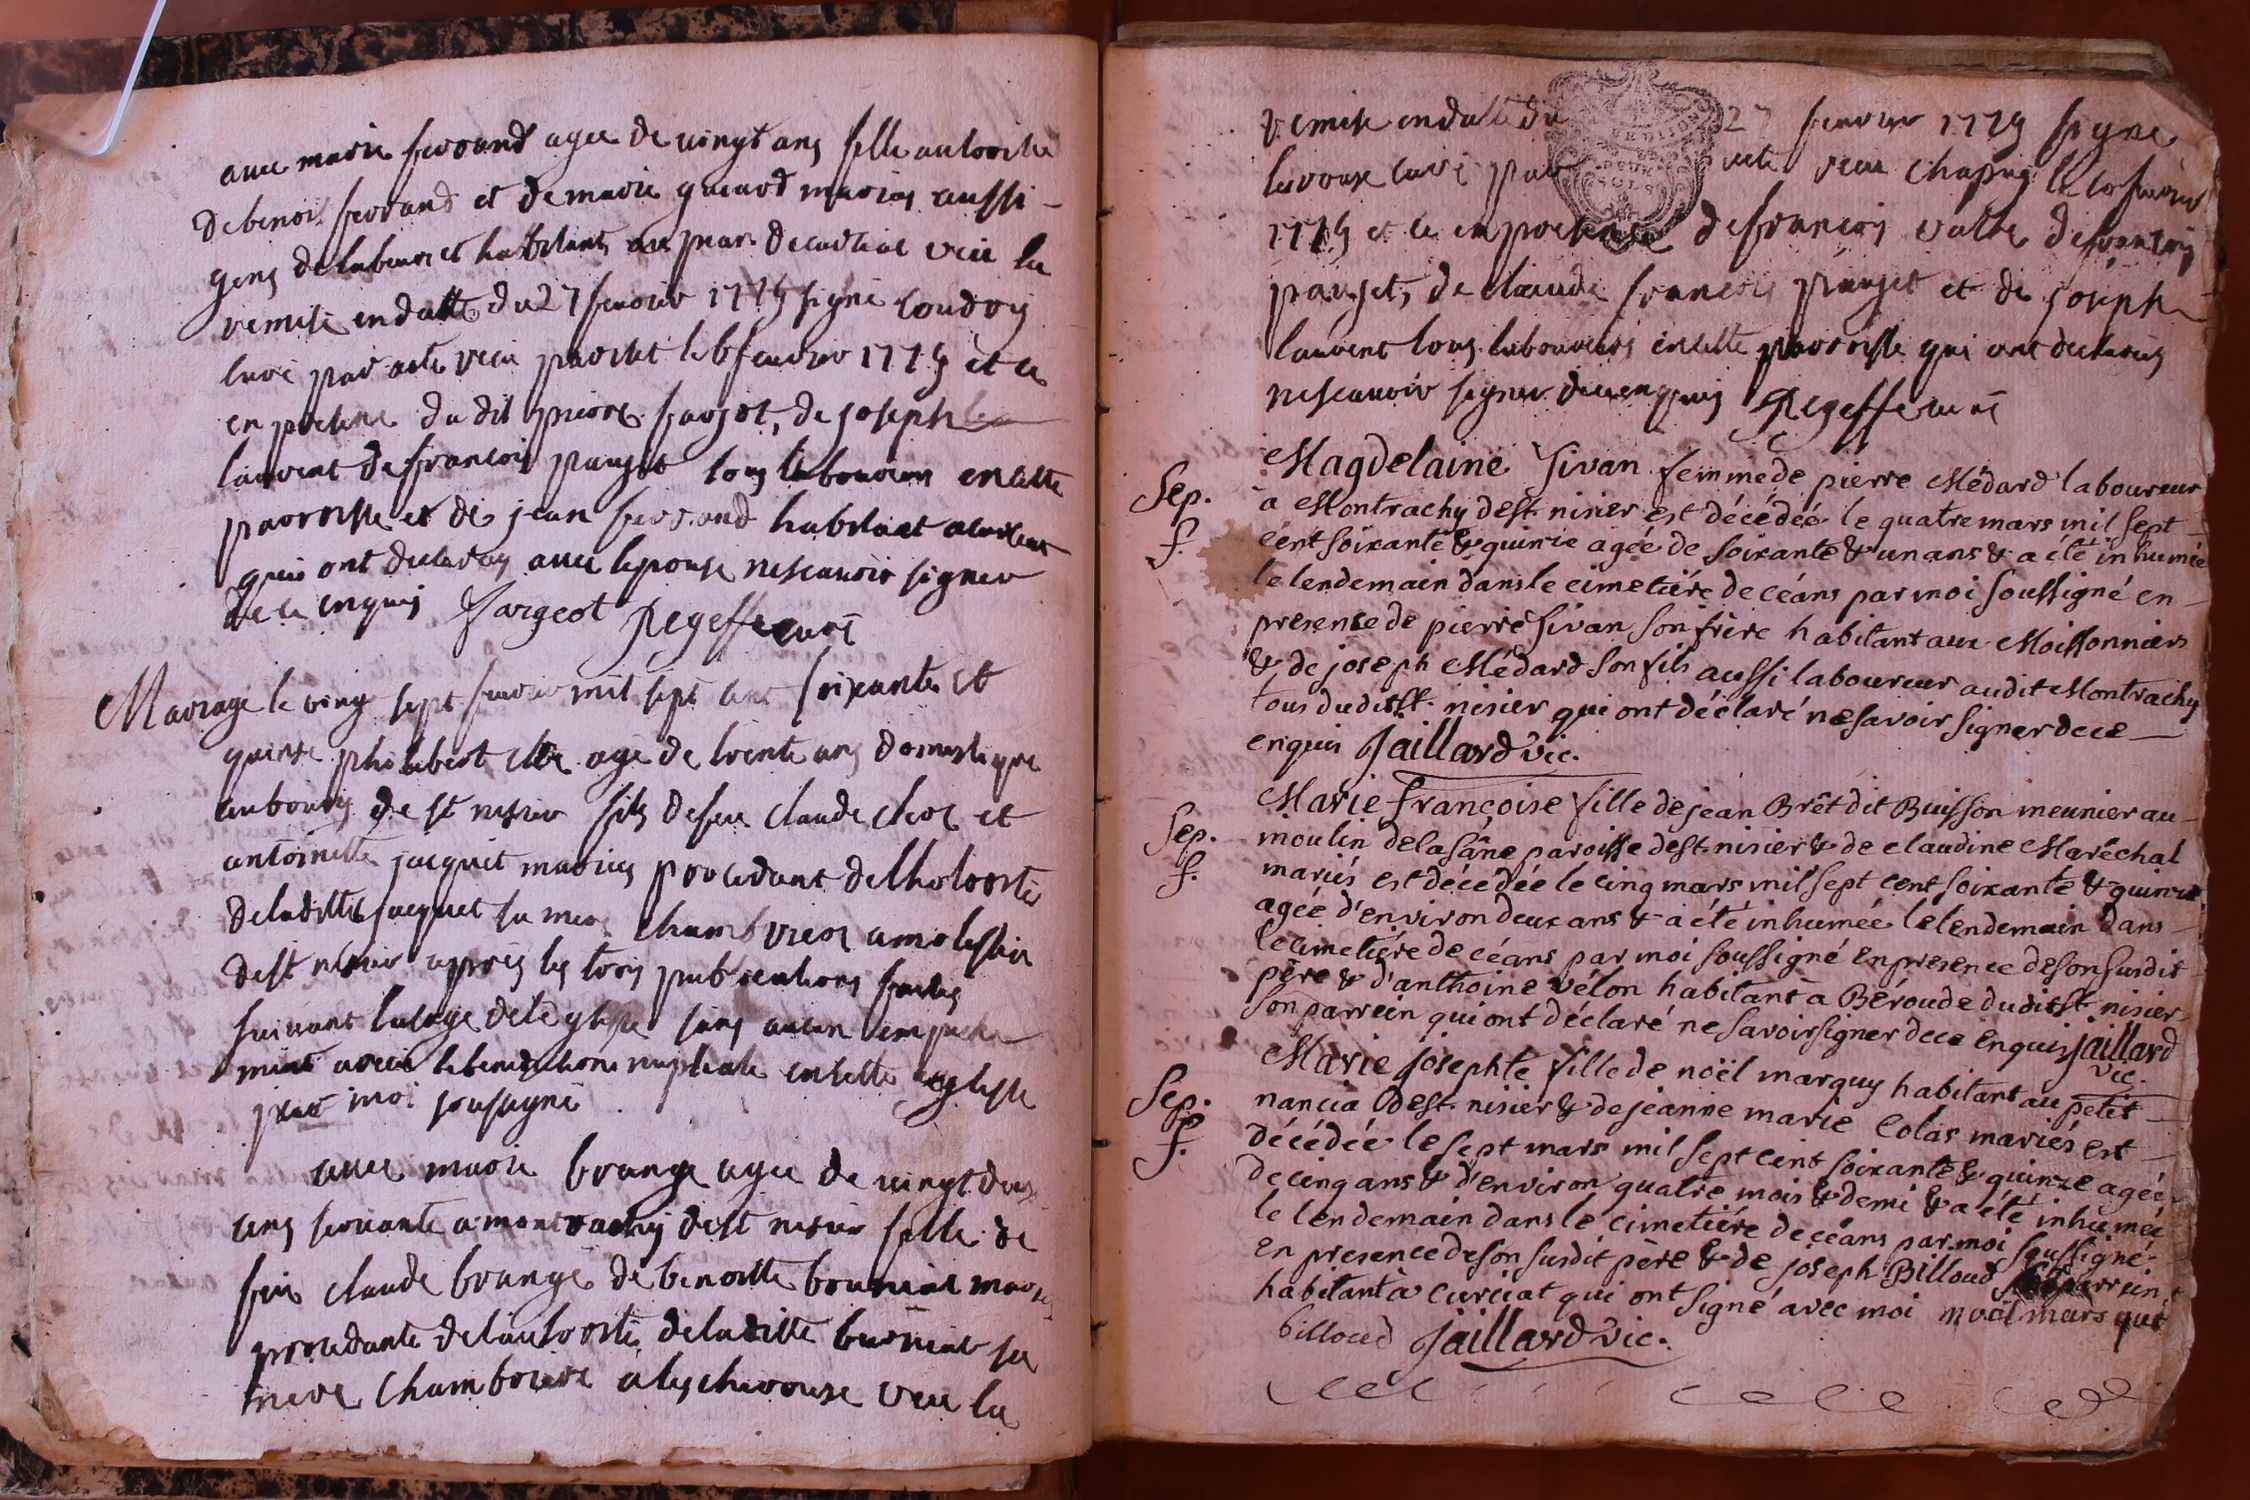 avec marie ferrand agee de vingt ans fille authorisée
de benoit ferrand et de marie guiard mariés aussi
gens de labeurs et habitans
remise en datte du 27 fevrier 1775 signé coudry
curé par acte reçu le 6 fevrier 1775 et ce
en presence du dit pierre farjot, de joseph
laurent de françois pauget tous laboureurs en cette
parroisse et de jean ferrand habitant
qui ont declarés avec l'epouse ne scavoir signer
de ce enquis Fargeot Regeffe curé
Mariage le vingt sept fevrier mil sept cent soixante et
quinze philibert age de trente ans domestique
au bourg de st nisier fils de feu claude et
antoinette jacquet mariés procedant de lhotorité
de laditte jacquet sa mere chambriere
de st nisier après les trois publications faites
suivant lusage de leglisse sans aucun empeche
ment reçu la benediction nuptiale en cette eglisse
par moi sousigné
avec marie brange agee de vingt deux
ans servante a montrachy de st nisier fille de
feu claude brange de benoitte mariés
procedante de lautorité de laditte sa
mere chambriere a veu la
remise en datte du 27 fevrier 1775 signé
leroux curé par acte reçu le 10 fevrier
1775 et ce en presence de françois de françois
pauget, de claude françois pauget et de joseph
laurent tous laboureurs en cette parroisse qui ont declarés
ne scavoir signer de ce enquis Regeffe curé
Magdelaine Sivan femme de pierre Médard laboureur
Sep. à Montrachy de st. nisier est décédée le quatre mars mil sept
f. cent soixante & quinze agée de soixante & un ans & a été inhumée
le lendemain dans le cimetiére de céans par moi soussigné en
presence de pierre Sivan son frère habitant aux Moissonniers
& de joseph Médard son fils aussi laboureur audit Montrachy
tous dudit st. nisier qui ont déclaré ne savoir signer de ce
enquis Jaillard vic.
Marie françoise fille de jean Brêt dit Buisson meunier au
Sep. moulin de la sâne paroisse de st. nisier & de claudine Maréchal
f. mariés est décédée le cinq mars mil sept cent soixante & quinze
agée d'environ deux ans & a été inhumée le lendemain dans
le cimetiére de céans par moi soussigné en presence de son susdit
père & d'anthoine vélon habitant à Béroude dudit st. nisier
son parrein qui ont déclaré ne savoir signer de ce enquis Jaillard
vic.
Marie josephte fille de noël marquy habitant au petit
Sep. nancia de st. nisier & de jeanne marie Colas mariés est
f. décédée le sept mars mil sept cent soixante & quinze agée
de cinq ans & d'environ quatre mois & demi & a été inhumée
le lendemain dans le cimetiére de céans par moi soussigné
en presence de son susdit père & de joseph Billoud parrein
habitant à curciat qui ont signé avec moi noël marquet
billoud Jaillard vic.